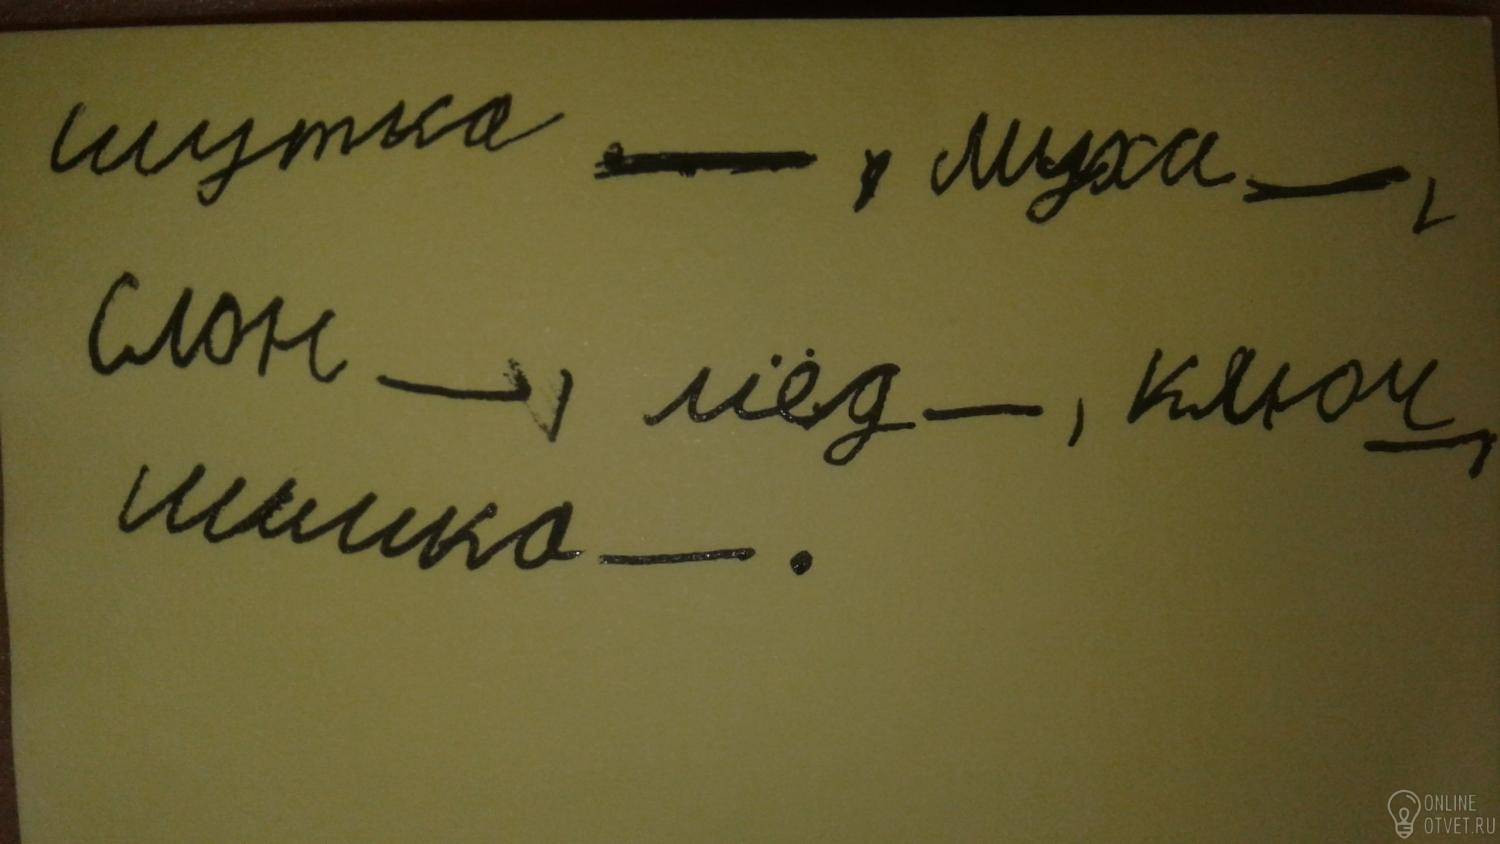 шутка — , муха — ,
слон — , мёд — , ключ — ,
шишка — .
ONLINE
OTVET.RU